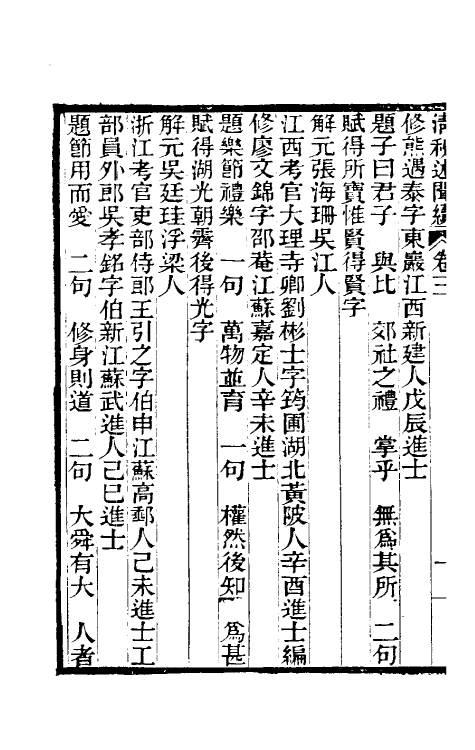 清秘述聞續 卷三 一
修熊遇泰字東巖江西新建人戊辰進士
題子曰君子　與比　郊社之禮　掌乎　無為其所　二句
賦得所寶惟賢得賢字
解元張海珊吳江人
江西考官大理寺卿劉彬士字筠圃湖北黃陂人辛酉進士編
修廖文錦字邵菴江蘇嘉定人辛未進士
題樂節禮樂　一句　萬物並育　一句　權然後知　為甚
賦得湖光朝霽後得光字
解元吳廷珪浮梁人
浙江考官吏部侍郎王引之字伯申江蘇高郵人己未進士工
部員外郎吳孝銘字伯新江蘇武進人己巳進士
題節用而愛　二句　修身則道　二句　大舜有大　人者